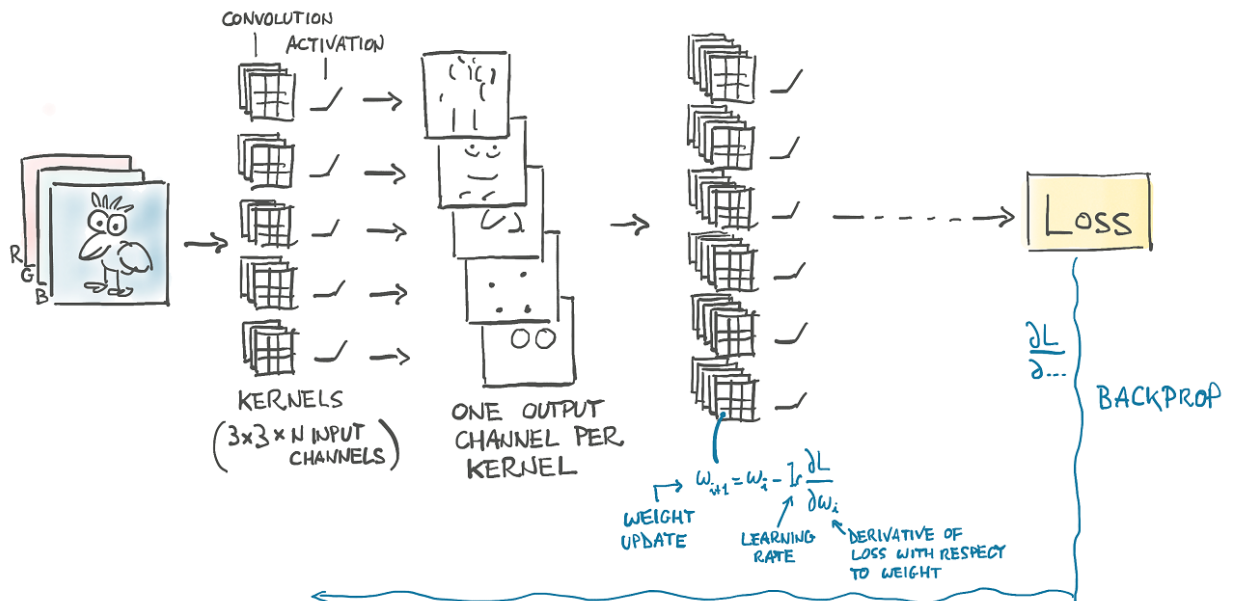 CONVOLUTION
ACTIVATION
R
G
B
KERNELS
(3×3×N INPUT
CHANNELS)
ONE OUTPUT
CHANNEL PER
KERNEL
LOSS
∂L
∂...
BACKPROP
ω_{i+1} = ω_i - lr ∂L/∂ω_i
WEIGHT
UPDATE
LEARNING
RATE
DERIVATIVE OF
LOSS WITH RESPECT
TO WEIGHT